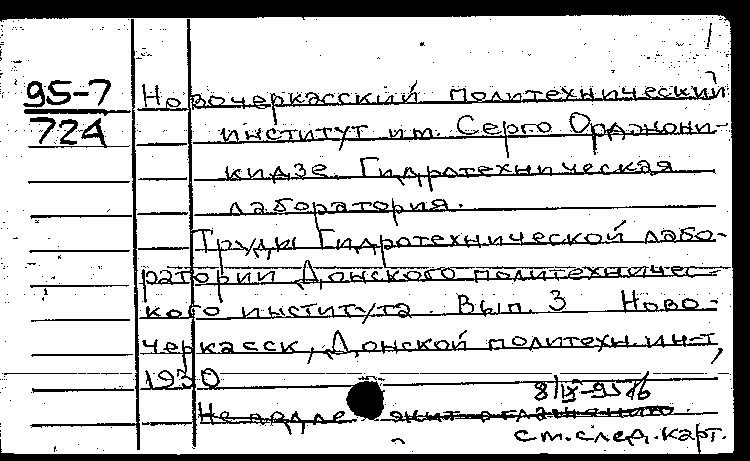 95-7
724
Новочеркасский политехнический
институт им. Серго Орджони-
кидзе. Гидротехническая
лаборатория.
Труды Гидротехнической лабо-
ратории Донского политехничес-
кого института. Вып. 3 Ново-
черкасск, Донской политехн. ин-т,
1930
8/IX-95
см. след. карт.